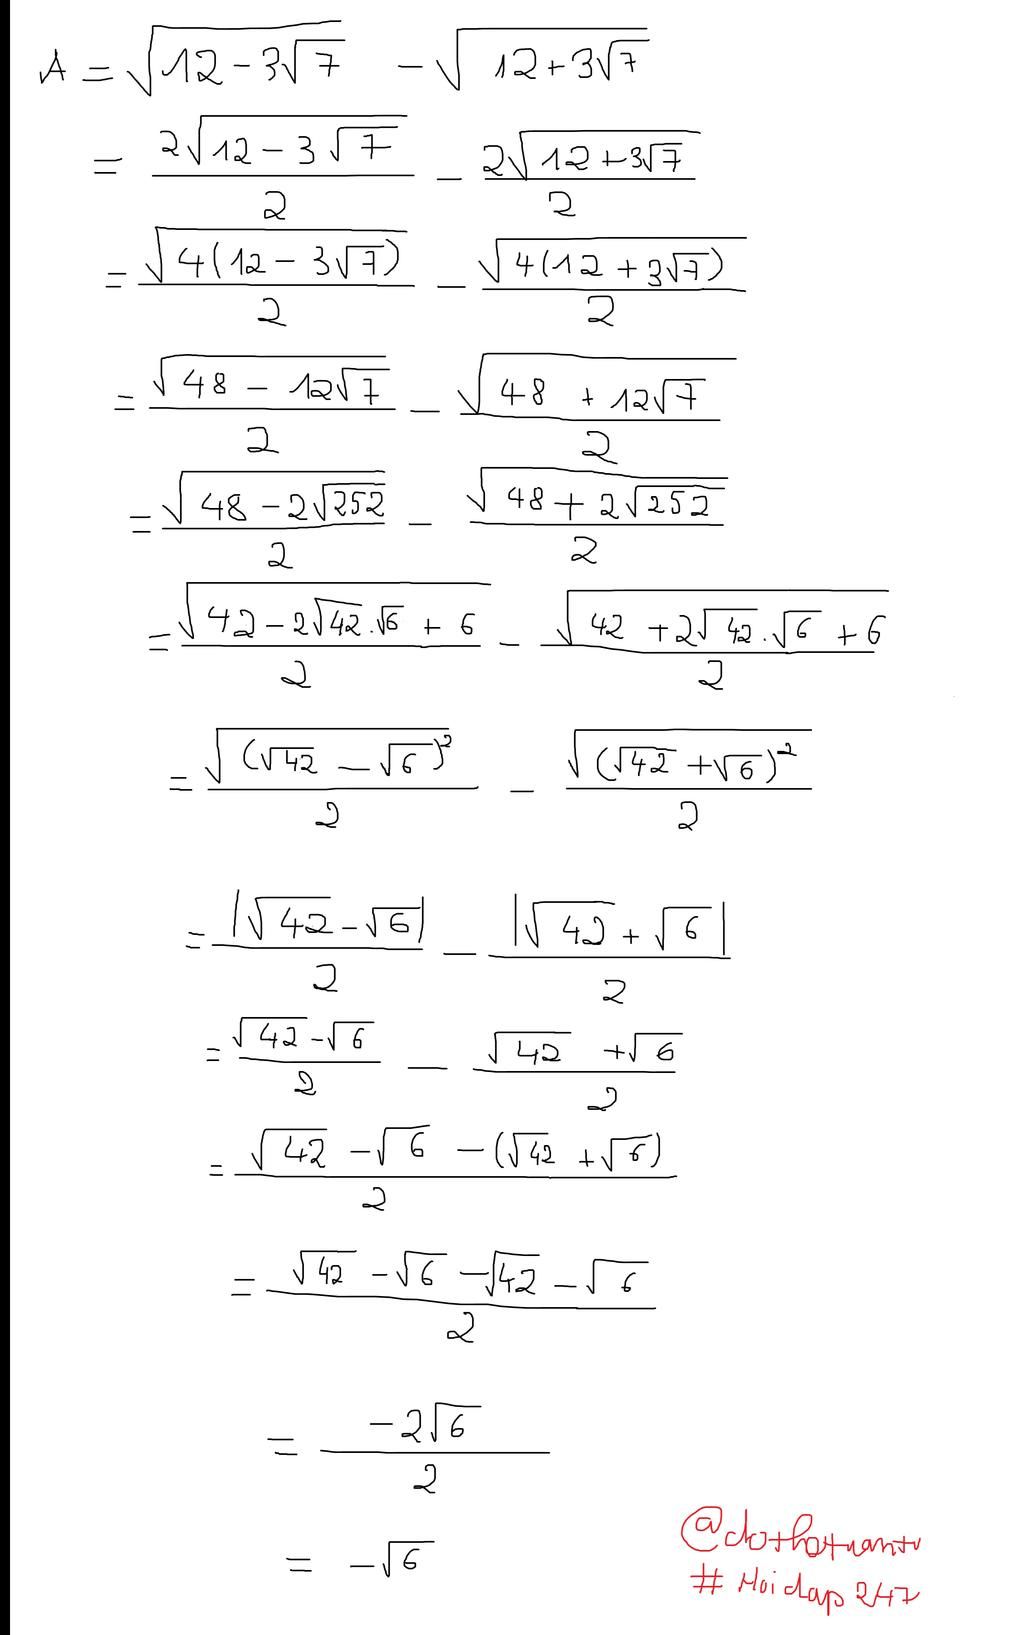 A = √(12 - 3√7) - √(12 + 3√7)
= 2√(12 - 3√7)/2 - 2√(12 + 3√7)/2
= √(4(12 - 3√7))/2 - √(4(12 + 3√7))/2
= √(48 - 12√7)/2 - √(48 + 12√7)/2
= √(48 - 2√252)/2 - √(48 + 2√252)/2
= √(42 - 2√42.√6 + 6)/2 - √(42 + 2√42.√6 + 6)/2
= √((√42 - √6)²)/2 - √((√42 + √6)²)/2
= |√42 - √6|/2 - |√42 + √6|/2
= (√42 - √6)/2 - (√42 + √6)/2
= (√42 - √6 - (√42 + √6))/2
= (√42 - √6 - √42 - √6)/2
= -2√6/2
= -√6
# Hoidap247